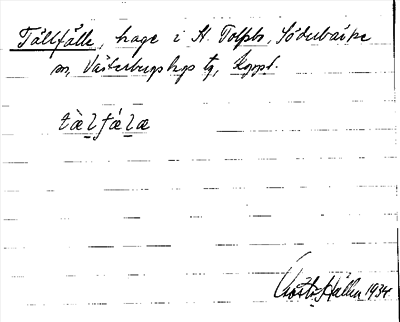 Tällfälle, hage i St. Tolpbo, Söderbärke
sn, Västerbergslags tg, Koppl.
tæ̀lfǽlæ
Källen 1934